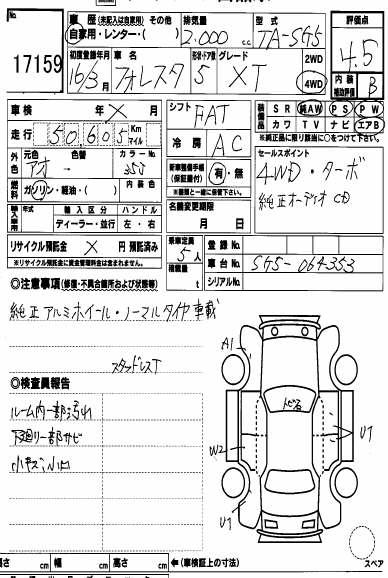 車歴 (未記入は自家用) その他 排気量 型式 評価点
自家用・レンター・( ) 2.000 c.c TA-SG5 4.5
No. 17159
初度登録年月 車名 形状・ドア グレード 2WD
16/3月 フォレスタ 5 XT 4WD
内装 補助評価 B
車検 年 × 月 シフト FAT 装備品 SR 純AW PS PW
カワ TV ナビ エアB
※純正品に限り該当に○をつけて下さい。
走行 50,605 Km マイル 冷房 AC
セールスポイント
外色 元色 色替 カラーNo.
アオ → 35J
新車整備手帳 (保証書付) 有・無
※書類と一緒に保管下さい。
4WD・ターボ
純正オーディオ CD
燃料 ガソリン・軽油・( ) 内装色
名義変更期限
月 日
輸入車用 年式 輸入区分 ハンドル
ディーラー・並行 左・右
リサイクル預託金 × 円預託済み
※リサイクル預託金に資金管理料金は含まれません。
乗車定員 5人
積載量 t
登録No.
車台No. SG5-064353
シリアルNo.
◎注意事項(修復・不具合箇所および状態等)
純正アルミホイール・ノーマルタイヤ車載
スタッドレスT
◎検査員報告
ルーム内一部汚れ
下廻り一部サビ
小キズ小凹
A1
トビ石
U1
W2
U1
スペア
高さ cm 幅 cm 高さ cm ←(車検証上の寸法)